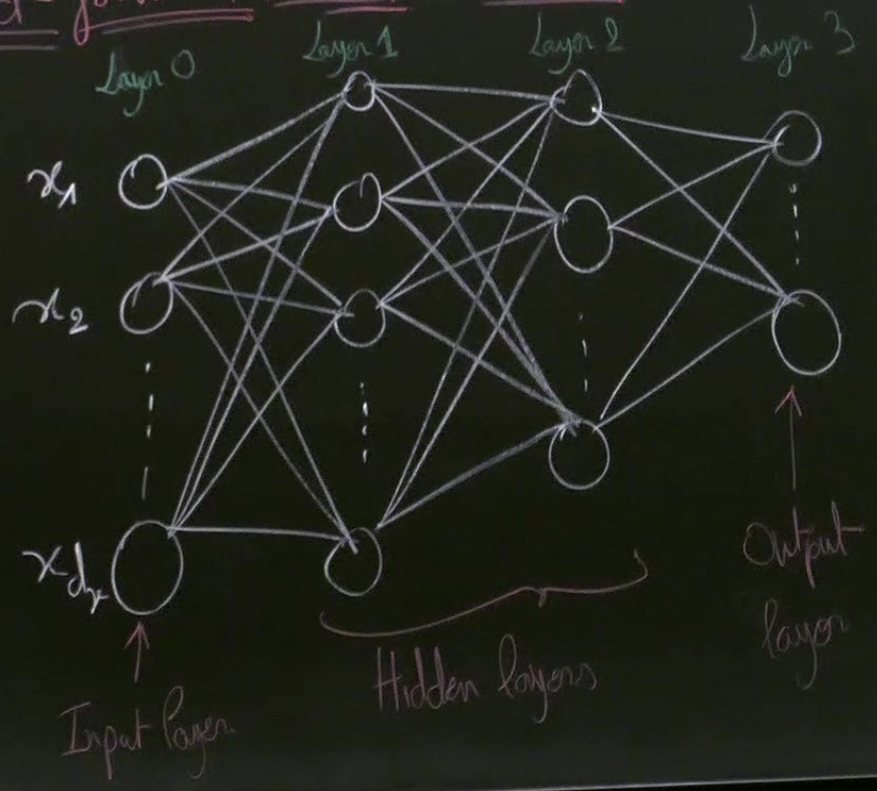 Layer 0 Layer 1 Layer 2 Layer 3
x₁
x₂
x_dₓ
Input layer
Hidden layers
Output
layer